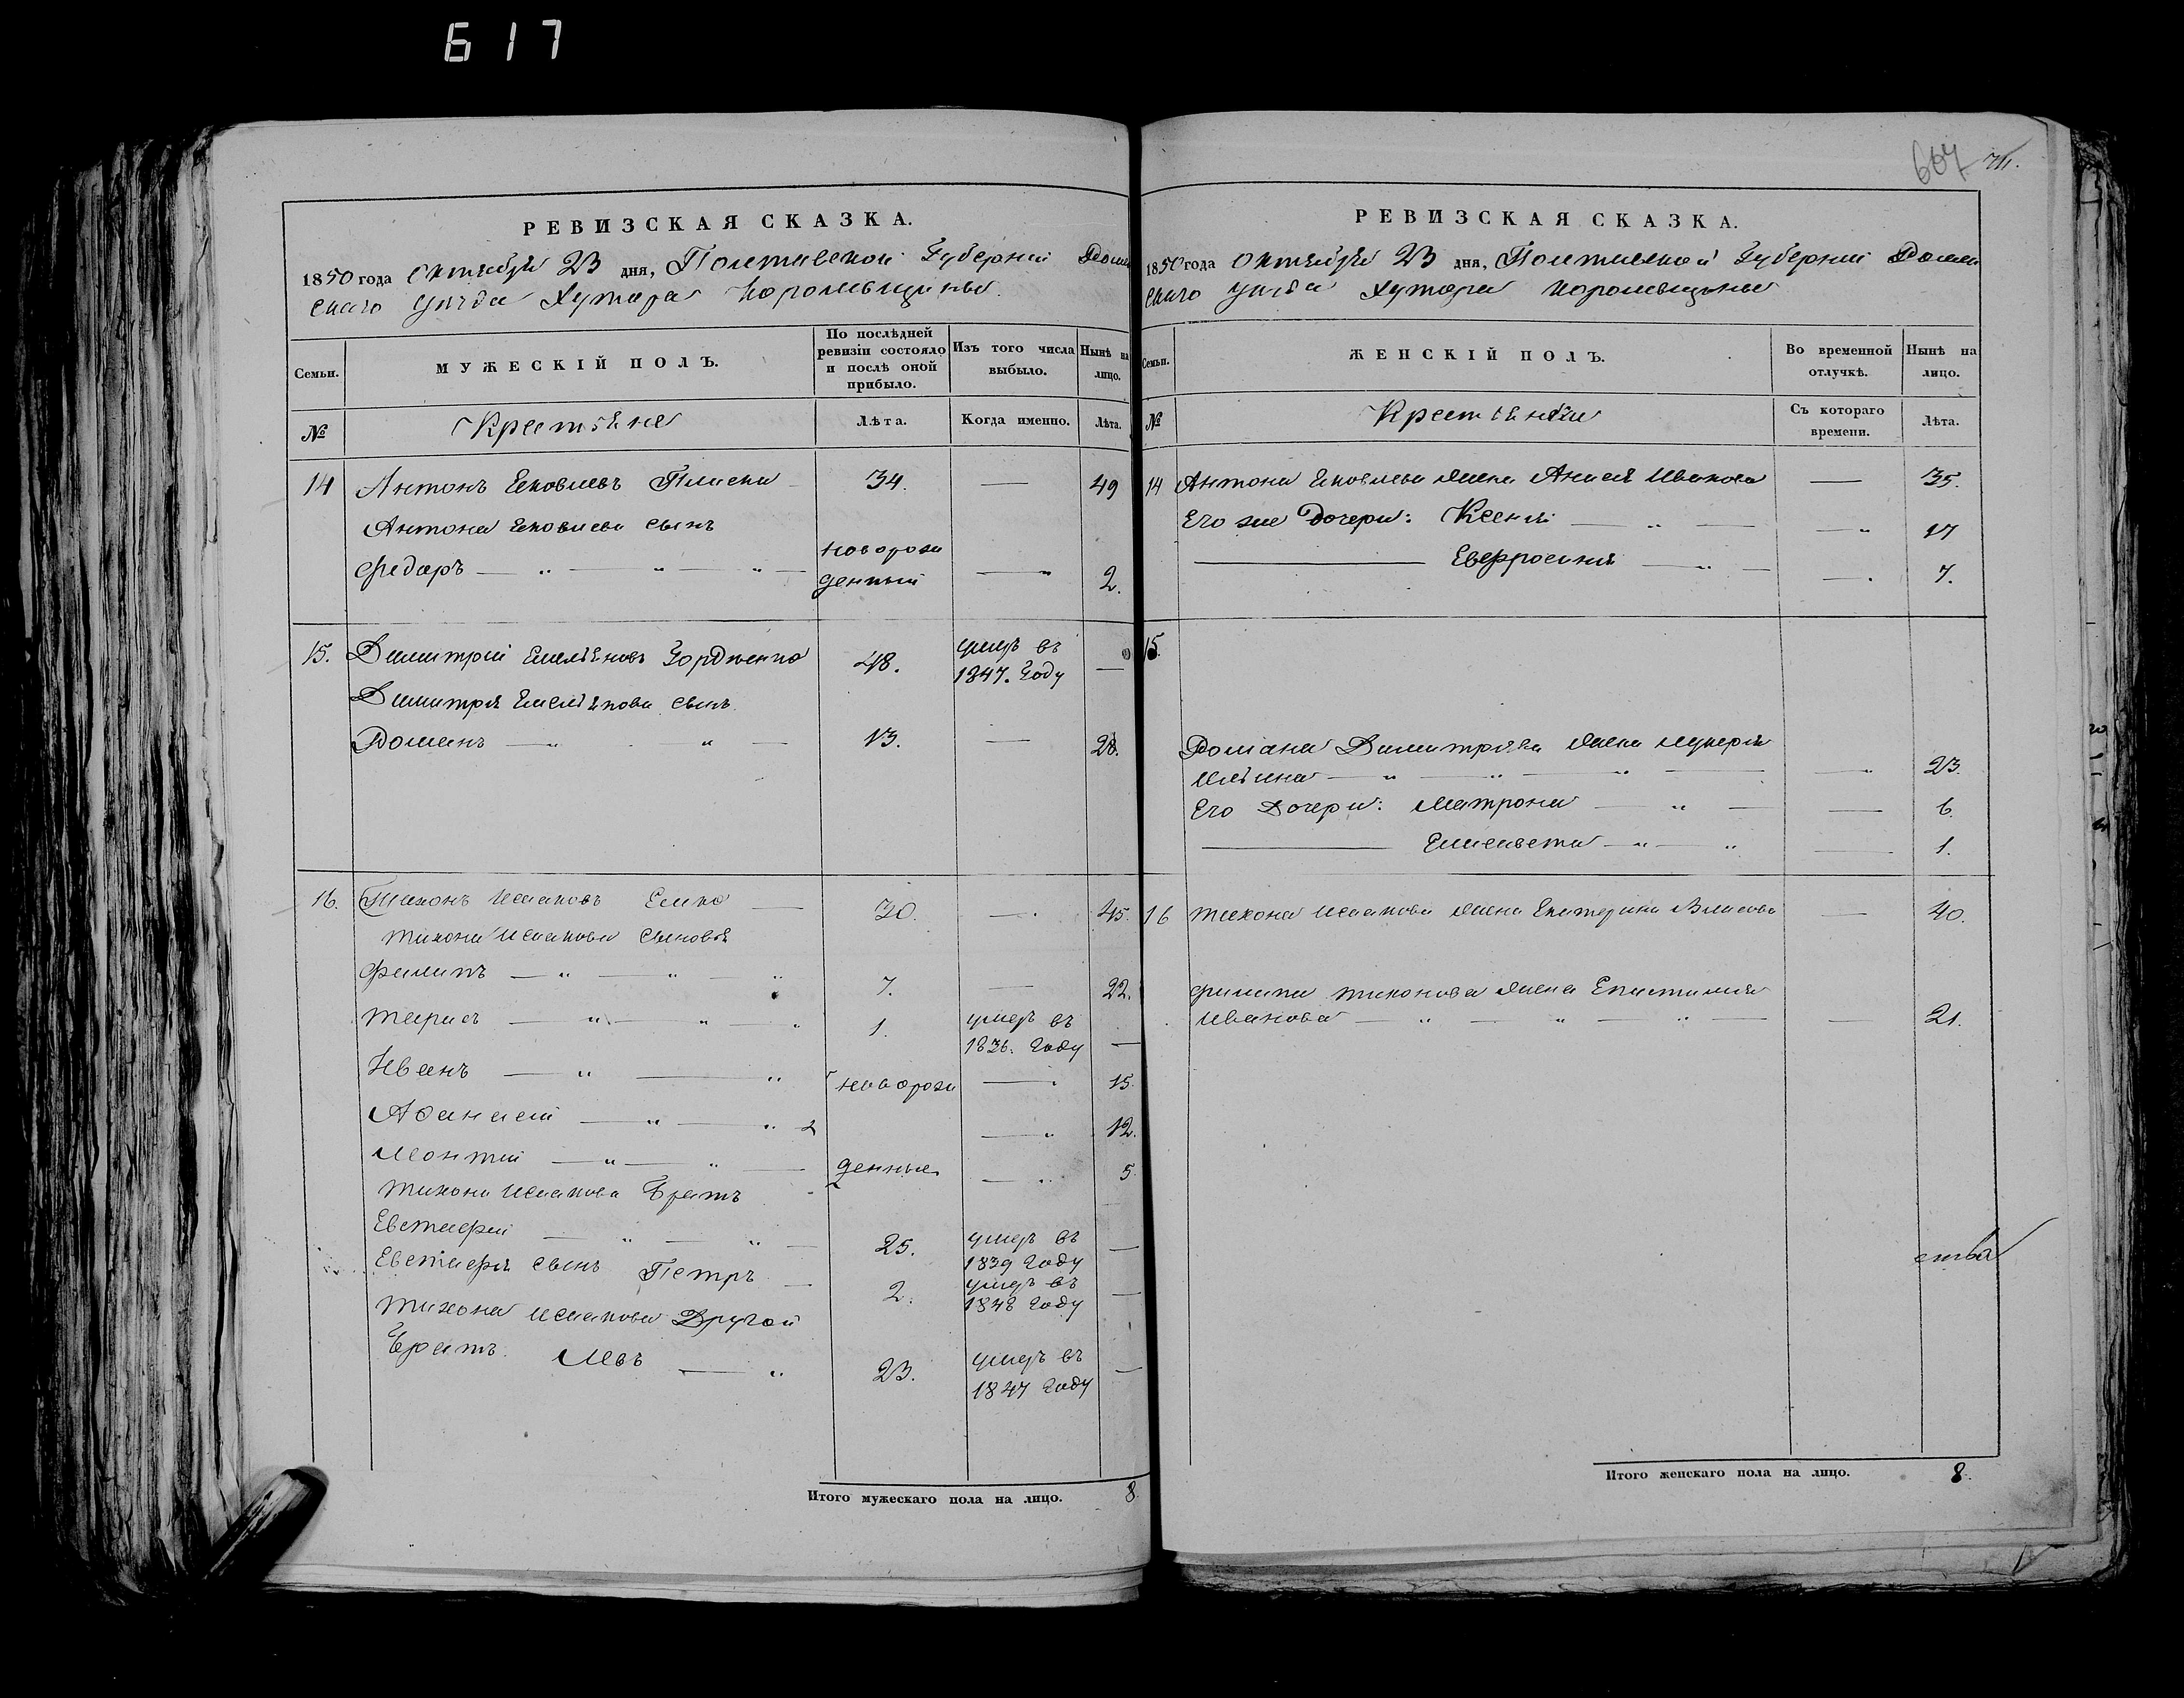 617
667
РЕВИЗСКАЯ СКАЗКА.
1850 года Октября 23 дня, Полтавской Губернии Ромен
скаго уѣзда Хутора Королевщины
Семьи.
МУЖЕСКІЙ ПОЛЪ.
По послѣдней ревизіи состояло и послѣ оной прибыло.
Изъ того числа выбыло.
Нынѣ на лицо.
№
Крестьяне
Лѣта.
Когда именно.
Лѣта.
14 Антонъ Яковлевъ Плиска 34. — 49
Антона Яковлева сынъ
Федоръ — новорож
денный — 2.
15. Димитрій Емельяновъ Гордіенко 48. умеръ въ
1847. Году —
Димитрія Емельянова сынъ
Романъ — 13. — 28.
16. Тихонъ Исааковъ 30. — 45.
Тихона Исаакова сыновья
Филипъ — 7. — 22.
Тарасъ — 1. умеръ въ
1836. Году —
Иванъ — новорож — 15.
Афанасій — 2 — 12.
Леонтій — денные — 5.
Тихона Исаакова братъ
Евстафій — 25. умеръ въ
1839 Году —
Евстафія сынъ Петръ — 2. умеръ въ
1848 Году —
Тихона Исаакова Другой
братъ Левъ — 23. умеръ въ
1847 Году —
Итого мужескаго пола на лицо. 8.
РЕВИЗСКАЯ СКАЗКА.
1850 года Октября 23 дня, Полтавской Губернии Ромен
скаго уѣзда Хутора Королевщины
Семьи.
ЖЕНСКІЙ ПОЛЪ.
Во временной отлучкѣ.
Нынѣ на лицо.
№
Крестьянки
Съ котораго времени.
Лѣта.
14 Антона Яковлева жена Анисія Иванова — 35.
Его же Дочери: Ксенія — 17
Евфросинія — 7.
15.
Романа Димитріева жена Лукерія
Ильина — 23.
Его Дочери: Матрона — 6.
Елисавета — 1.
16 Тихона Исаакова жена Екатерина Власова — 40.
Филипа Тихонова жена Епистимія
Иванова — 21.
ства
Итого женскаго пола на лицо. 8.